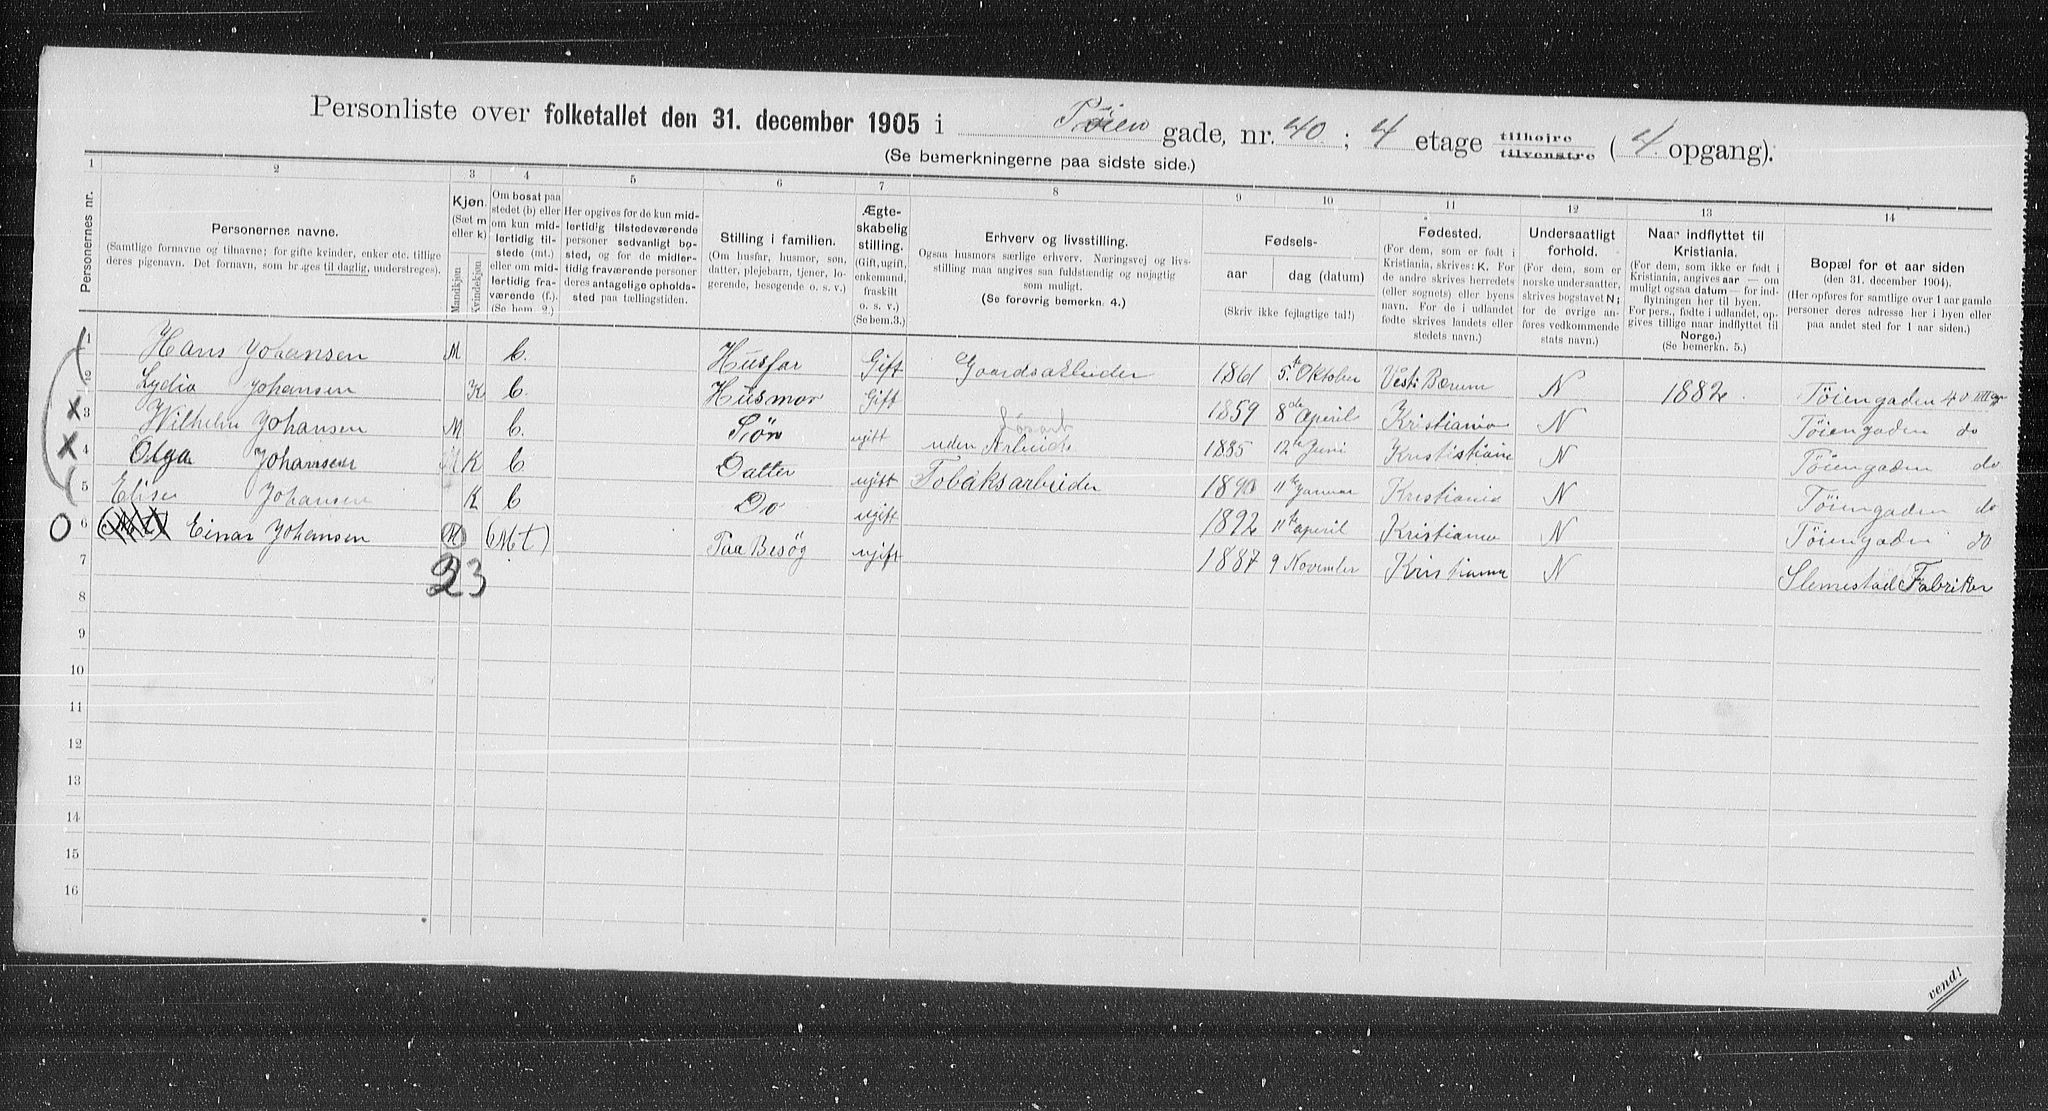 Personliste over folketallet den 31. december 1905 i Tøien gade, nr. 40 ; 4 etage tilhøire tilvenstre ( 4. opgang).
(Se bemerkningerne paa sidste side.)
1 2 3 4 5 6 7 8 9 10 11 12 13 14
Personernes nr.
Personernes navne.
(Samtlige fornavne og tilnavne; for gifte kvinder, enker etc. tillige deres pigenavn. Det fornavn, som bruges til daglig, understreges).
Kjøn. (Sæt m eller k)
Mandkjøn Kvindekjøn
Om bosat paa stedet (b) eller om kun midlertidig tilstede (mt.) eller om midlertidig fraværende (f.). (Se bem. 2.)
Her opgives for de kun midlertidig tilstedeværende personer sedvanligt bosted, og for de midlertidig fraværende personer deres antagelige opholdssted paa tællingstiden.
Stilling i familien.
(Om husfar, husmor, søn, datter, plejebarn, tjener, logerende, besøgende o. s. v.)
Ægteskabelig stilling. (Gift, ugift, enkemand, fraskilt o. s. v.) (Se bem. 3.)
Erhverv og livsstilling.
Ogsaa husmors særlige erhverv. Næringsvej og livsstilling maa angives saa fuldstændig og nøjagtig som muligt.
(Se forøvrig bemerkn. 4.)
Fødsels-
aar dag (datum)
(Skriv ikke fejlagtige tal!)
Fødested.
(For dem, som er født i Kristiania, skrives: K. For de andre skrives herredets (eller sognets) eller byens navn. For de i udlandet fødte skrives landets eller stedets navn.)
Undersaatligt forhold.
(For dem, som er norske undersaatter, skrives bogstavet N; for de øvrige anføres vedkommende stats navn.)
Naar indflyttet til Kristiania.
(For dem, som ikke er født i Kristiania, angives aar — om muligt ogsaa datum — for indflytningen her til byen. For pers., fødte i udlandet, opgives tillige naar indflyttet til Norge.)
(Se bemerkn. 5.)
Bopæl for et aar siden
(den 31. december 1904).
(Her opføres for samtlige over 1 aar gamle personer deres adresse her i byen eller paa andet sted for 1 aar siden.)
1 Hans Johansen M b. Husfar Gift Gaardsarbeider 1861 5te Oktober Vestr Bærum N 1882. Töiengaden 40
2 Lydia Johansen K b. Husmor Gift 1859 8de Aperil Kristiania N Töiengaden do
x 3 Wilhelm Johansen M b. Siön ugift uden Arbeide Løsarb 1885 12te Juni Krististiania N Töiengaden do
x 4 Olga Johansen K b Datter ugift Tobaksarbeider 1890 11te Januar Kristiania N Töiengaden do
5 Elise Johansen K b Do ugift 1892 11te aperil Kristiania N Töiengaden do
O 6 Einar Johansen M (Mt) Paa Besög ugift 1887 9 November Kristiania N Slemestad Fabriker
7
23
8
9
10
11
12
13
14
15
16
vend!